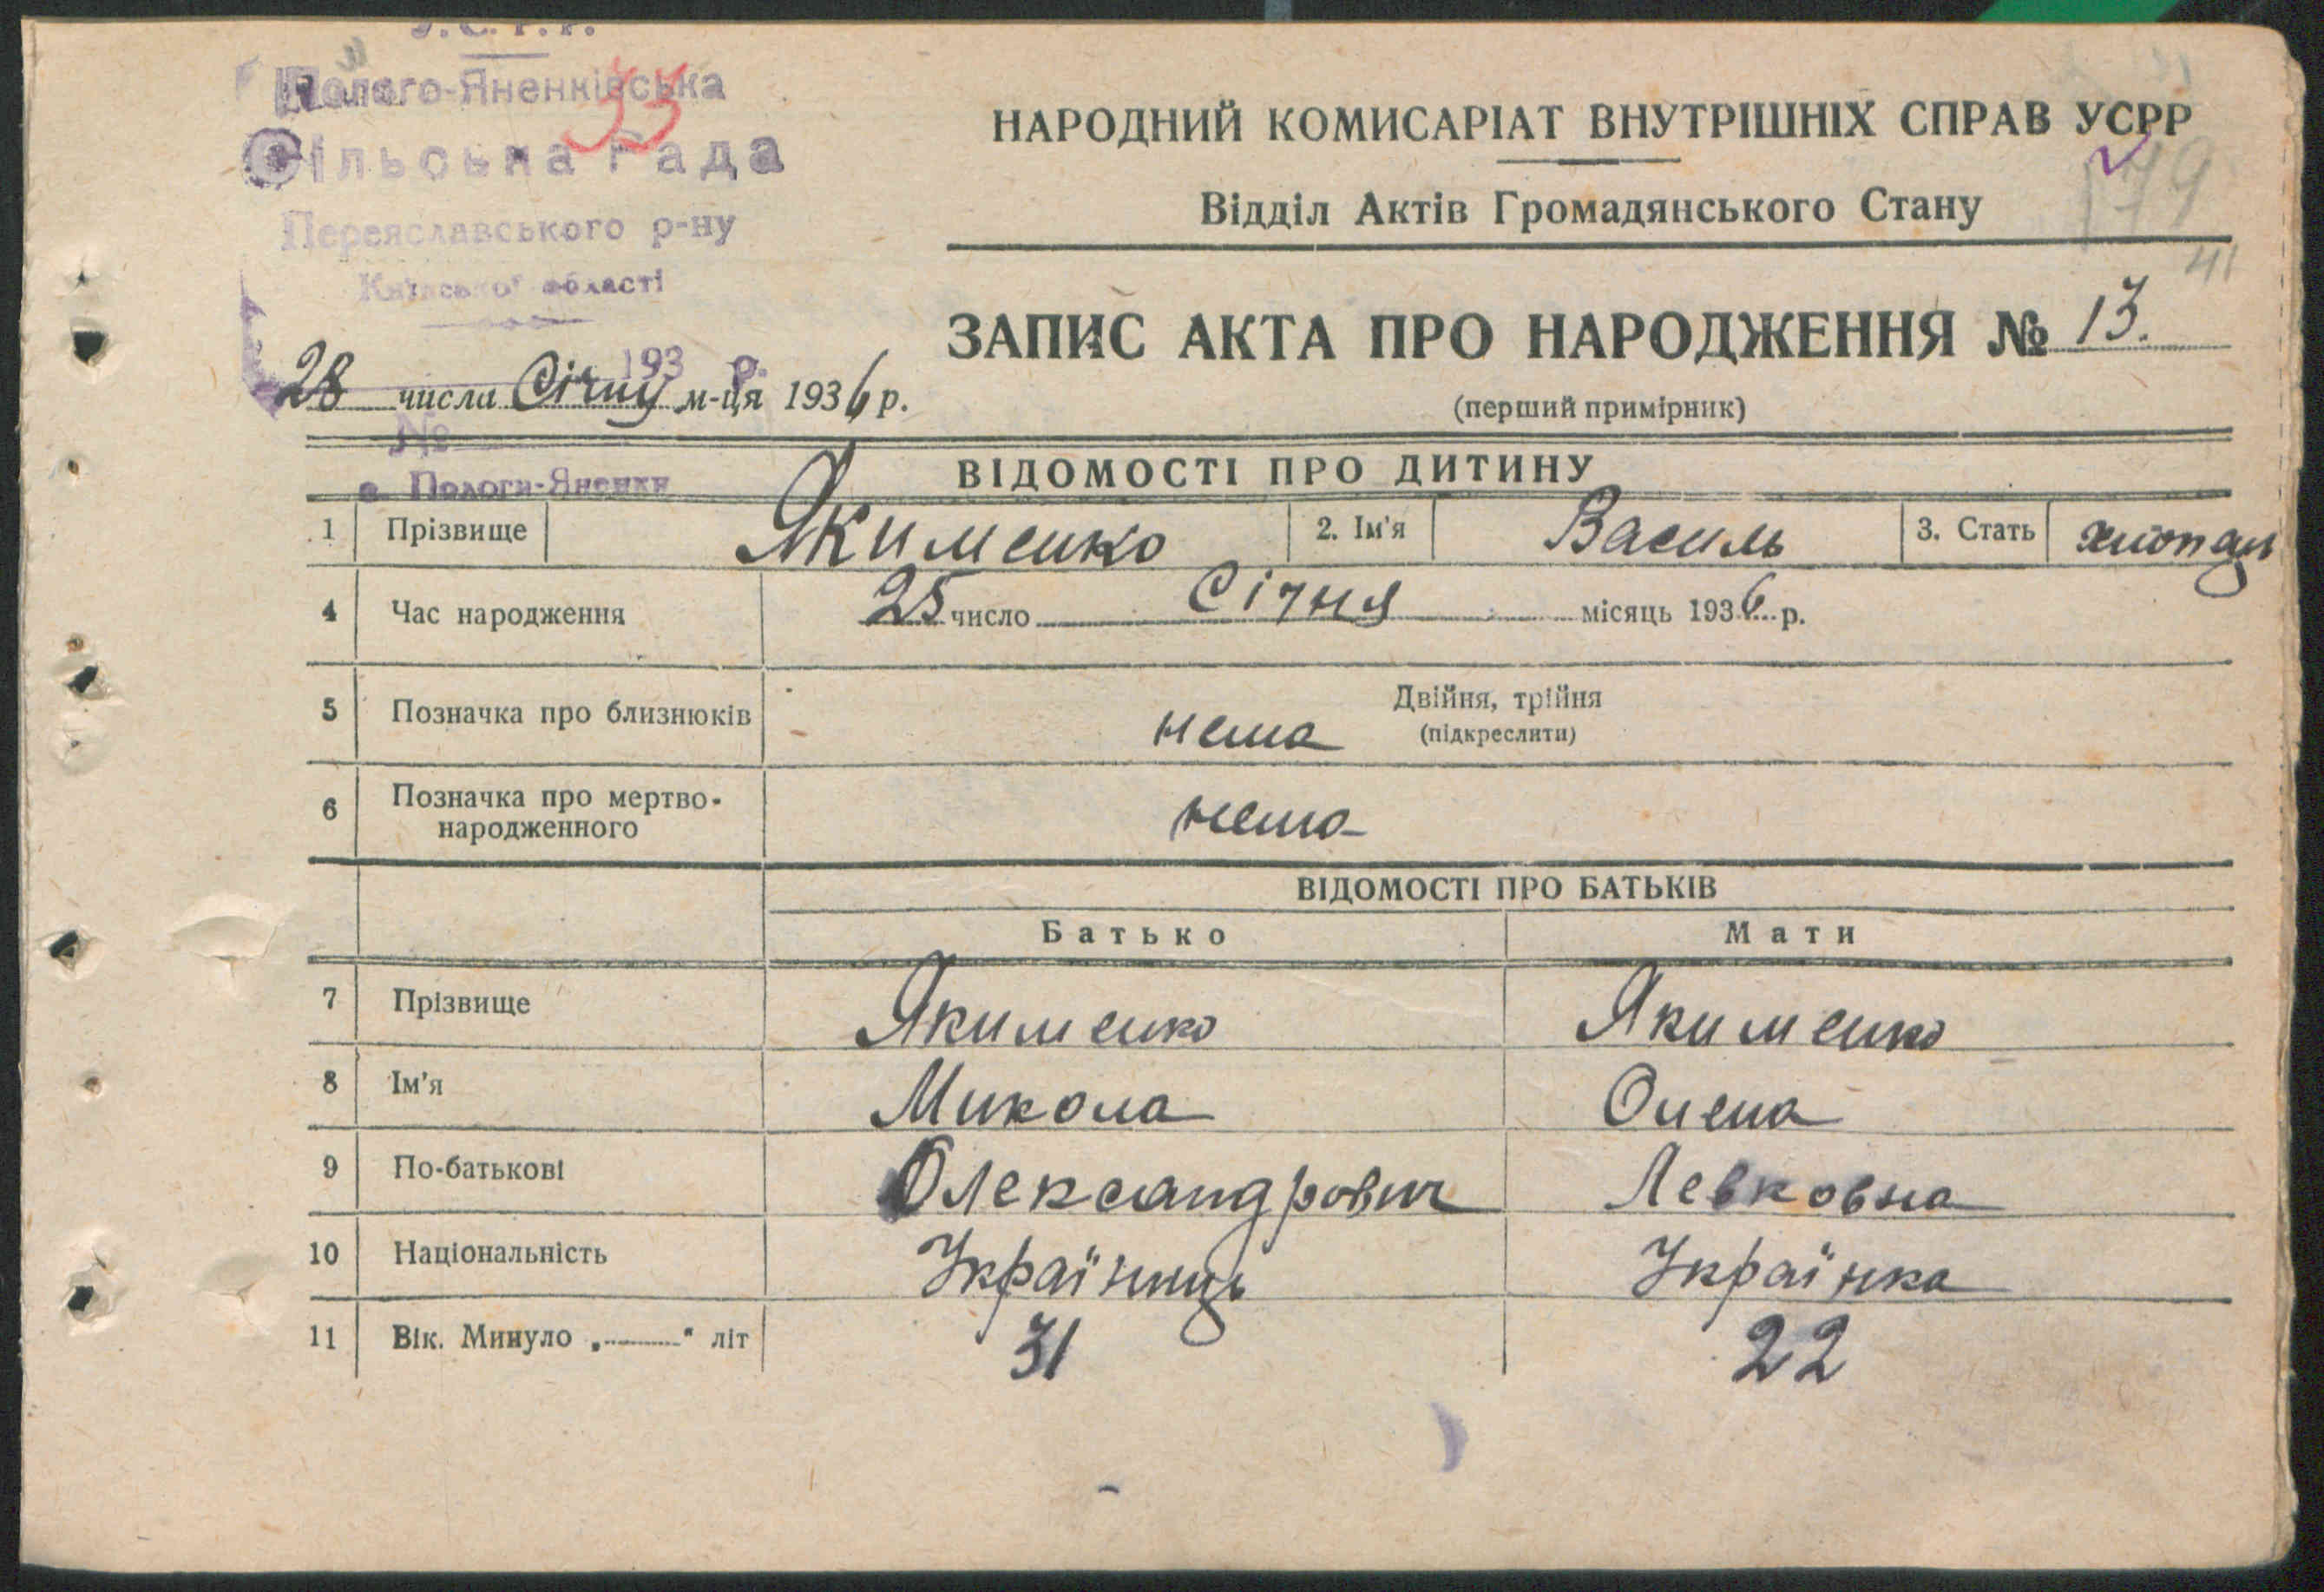 У.С.Р.Р.
Полого-Яненківська
33
Сільська Рада
Переяславського р-ну
Київської області
193 р.
№
с. Пологи-Яненки
НАРОДНИЙ КОМИСАРІАТ ВНУТРІШНІХ СПРАВ УСРР
179
Відділ Актів Громадянського Стану
41
ЗАПИС АКТА ПРО НАРОДЖЕННЯ № 13.
28 числа Січня м-ця 1936 р.
(перший примірник)
ВІДОМОСТІ ПРО ДИТИНУ
1 Прізвище Якименко 2. Ім'я Василь 3. Стать хлопець
4 Час народження 25 число Січня місяць 1936 р.
5 Позначка про близнюків нема Двійня, трійня
(підкреслити)
6 Позначка про мертво-
народженного нема
ВІДОМОСТІ ПРО БАТЬКІВ
Батько Мати
7 Прізвище Якименко Якименко
8 Ім'я Микола Олена
9 По-батькові Олександрович Левковна
10 Національність Українець Українка
11 Вік. Минуло „ " літ 31 22